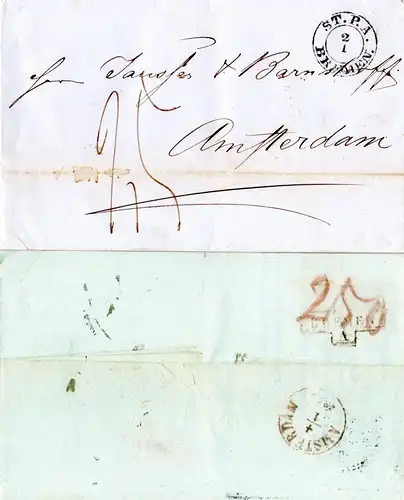 ST. P. A.
2
1
BREMEN.
Herr Jansses & Barnstorff
Amsterdam
250
AMSTERDAM
4
1